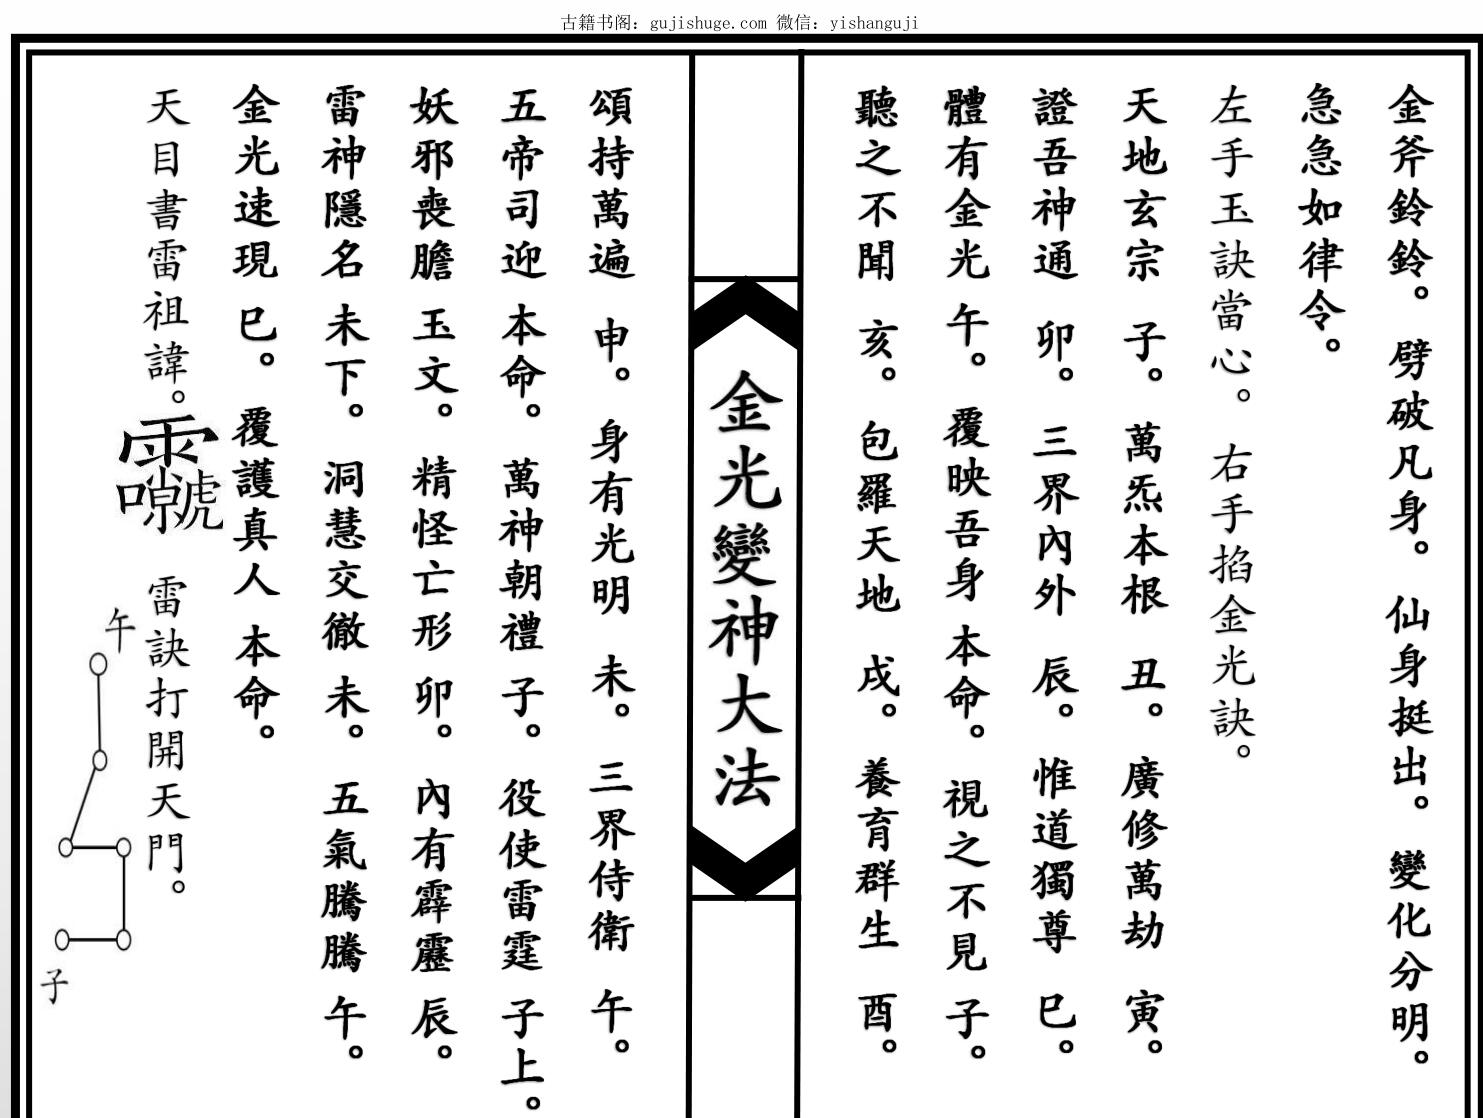 古籍书阁：gujishuge.com 微信：yishanguji
金斧鈴鈴。劈破凡身。仙身挺出。變化分明。
急急如律令。
左手玉訣當心。右手掐金光訣。
天地玄宗 子。萬炁本根 丑。廣修萬劫 寅。
證吾神通 卯。三界內外 辰。惟道獨尊 巳。
體有金光 午。覆映吾身 本命。視之不見 子。
聽之不聞 亥。包羅天地 戌。養育群生 酉。
金光變神大法
頌持萬遍 申。身有光明 未。三界侍衛 午。
五帝司迎 本命。萬神朝禮 子。役使雷霆 子上。
妖邪喪膽 玉文。精怪亡形 卯。內有霹靂 辰。
雷神隱名 未下。洞慧交徹 未。五氣騰騰 午。
金光速現 巳。覆護真人 本命。
天目書雷祖諱。雷訣打開天門。
午
子